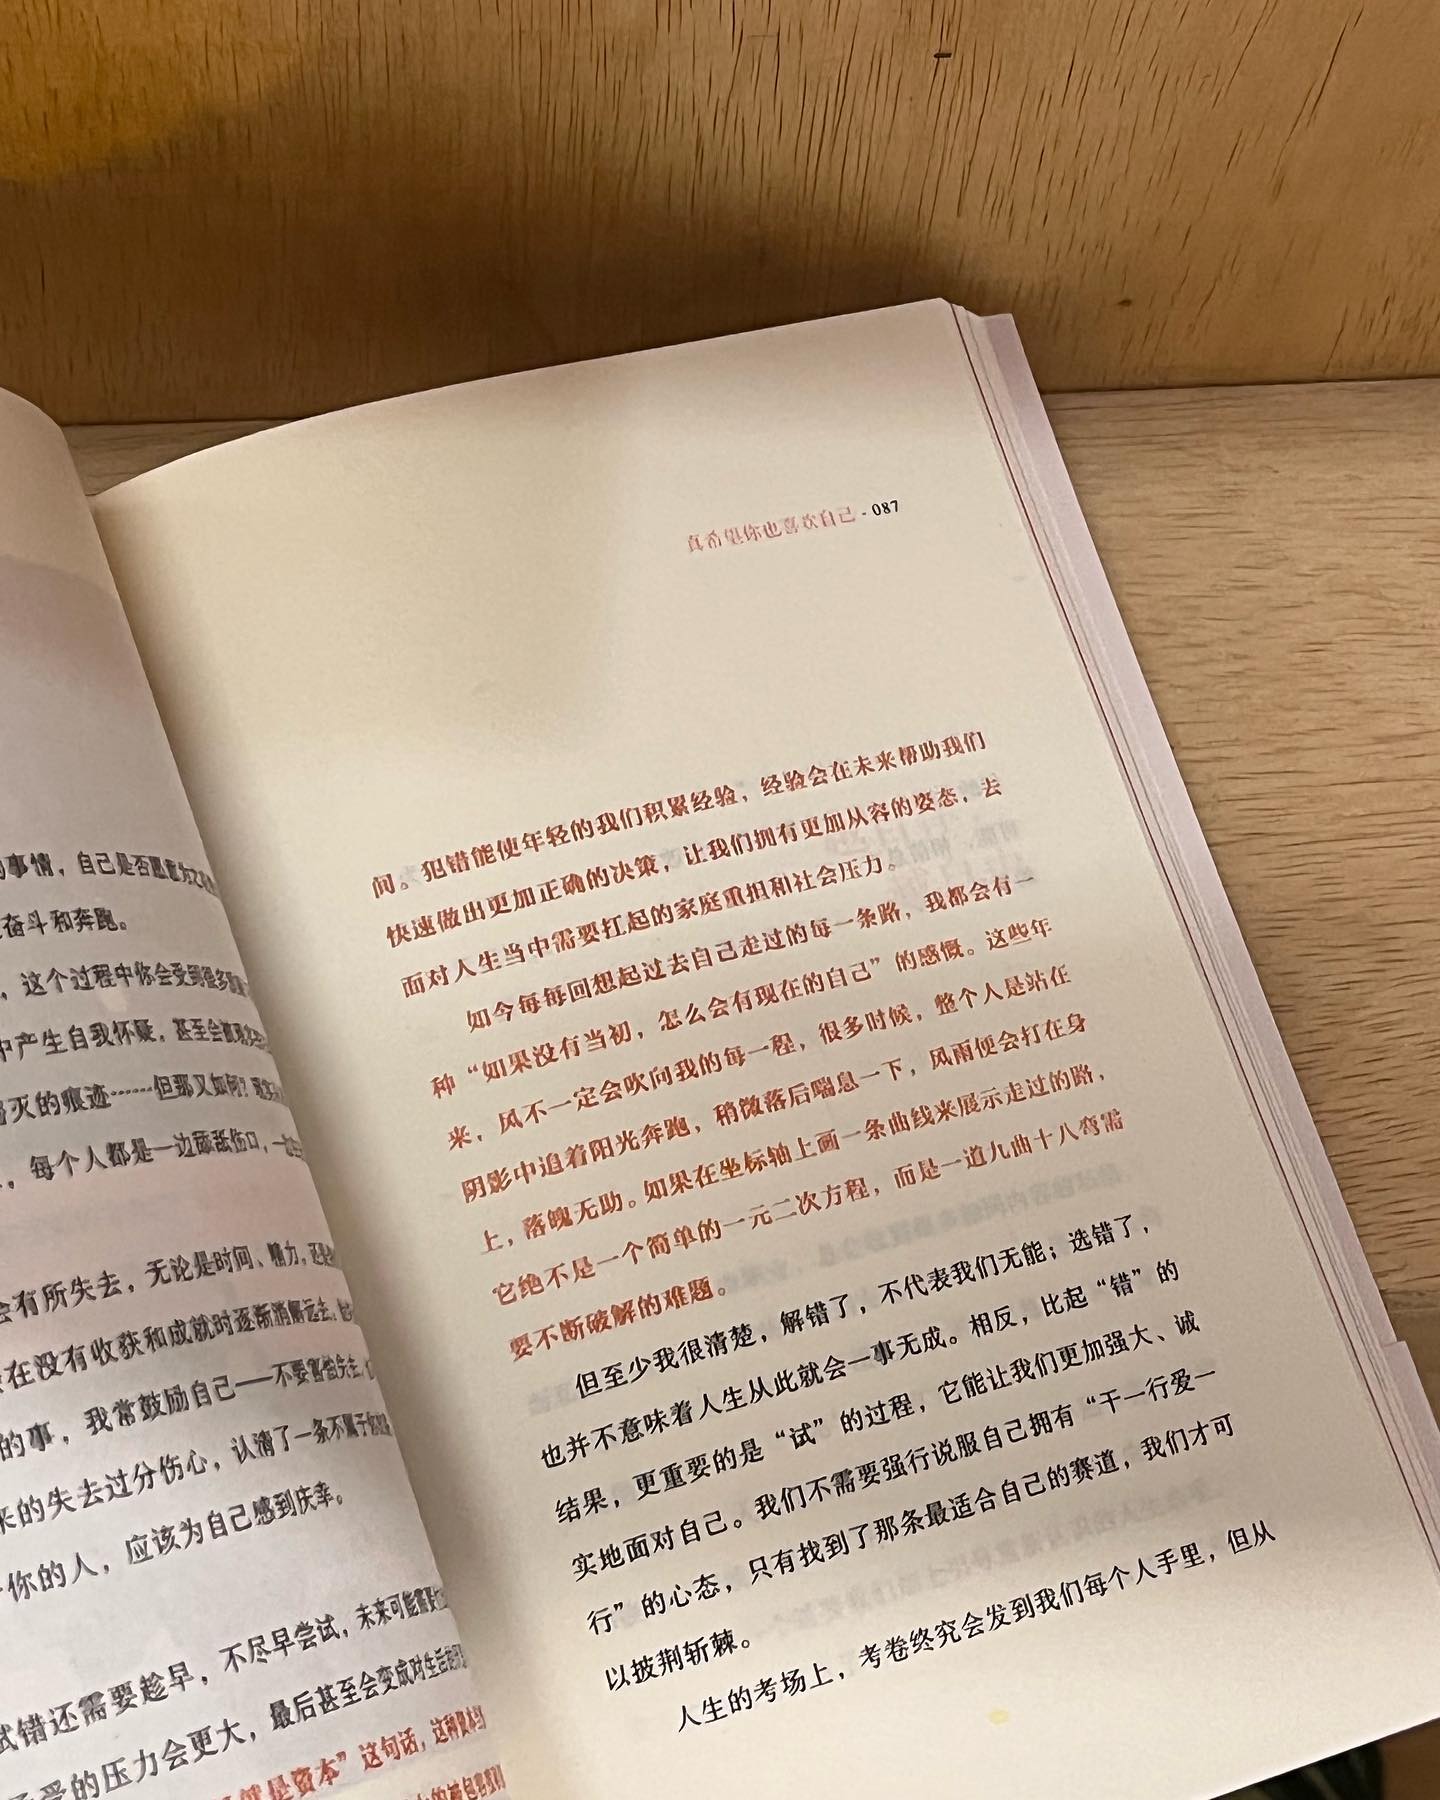 事情，自己是否愿意为之
奋斗和奔跑。
，这个过程中你会受到很多
中产生自我怀疑，甚至会
灭的痕迹……但那又如何？
，每个人都是一边舔舐伤口，一边
会有所失去，无论是时间、精力，还
在没有收获和成就时逐渐消解远去。
的事，我常鼓励自己——不要害怕失去，
来的失去过分伤心，认清了一条不属于你
你的人，应该为自己感到庆幸。
试错还需要趁早，不尽早尝试，未来可能需要
受的压力会更大，最后甚至会变成对生活
就是资本”这句话，这种
真希望你也喜欢自己 - 087
间。犯错能使年轻的我们积累经验，经验会在未来帮助我们
快速做出更加正确的决策，让我们拥有更加从容的姿态，去
面对人生当中需要扛起的家庭重担和社会压力。
如今每每回想起过去自己走过的每一条路，我都会有一
种“如果没有当初，怎么会有现在的自己”的感慨。这些年
来，风不一定会吹向我的每一程，很多时候，整个人是站在
阴影中追着阳光奔跑，稍微落后喘息一下，风雨便会打在身
上，落魄无助。如果在坐标轴上画一条曲线来展示走过的路，
它绝不是一个简单的一元二次方程，而是一道九曲十八弯需
要不断破解的难题。
但至少我很清楚，解错了，不代表我们无能；选错了，
也并不意味着人生从此就会一事无成。相反，比起“错”的
结果，更重要的是“试”的过程，它能让我们更加强大、诚
实地面对自己。我们不需要强行说服自己拥有“干一行爱一
行”的心态，只有找到了那条最适合自己的赛道，我们才可
以披荆斩棘。
人生的考场上，考卷终究会发到我们每个人手里，但从